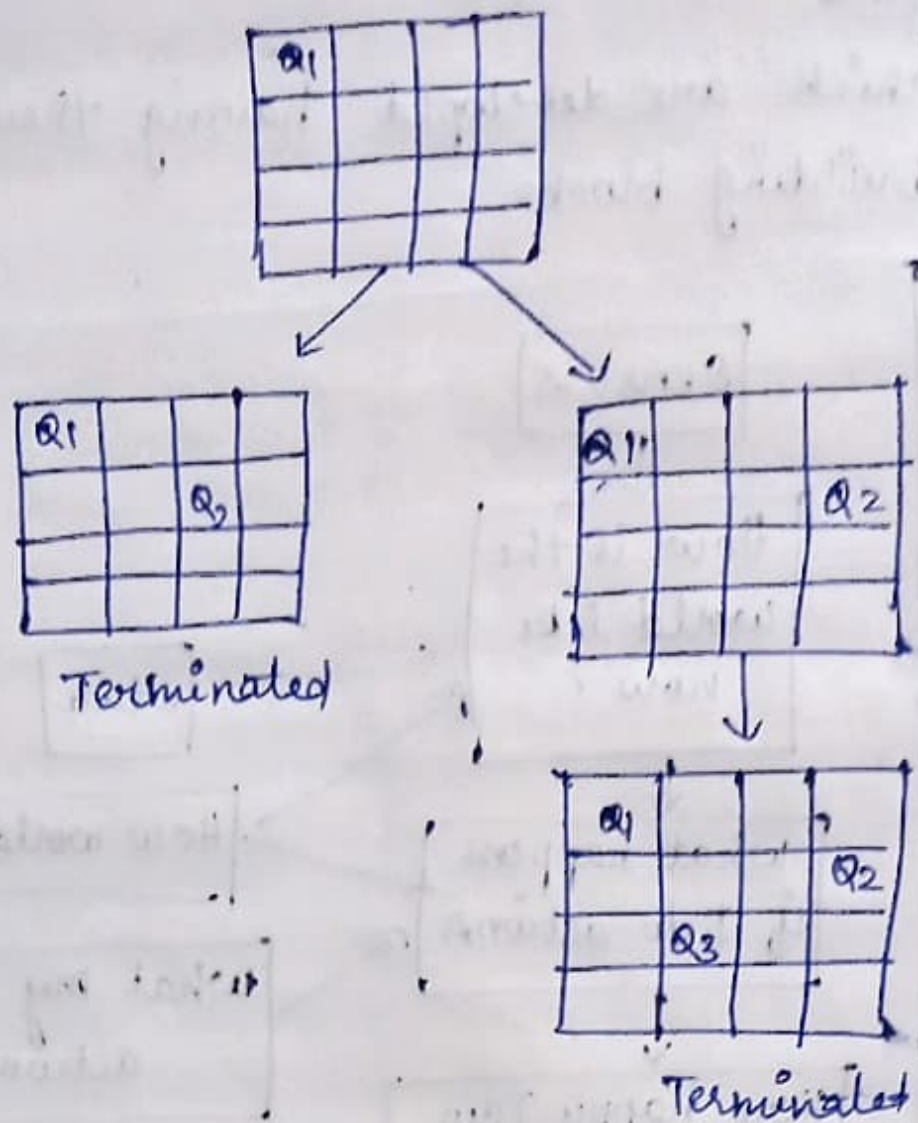 Q1
Q1
Q2
Terminated
Q1
Q2
Q1
Q2
Q3
Terminated